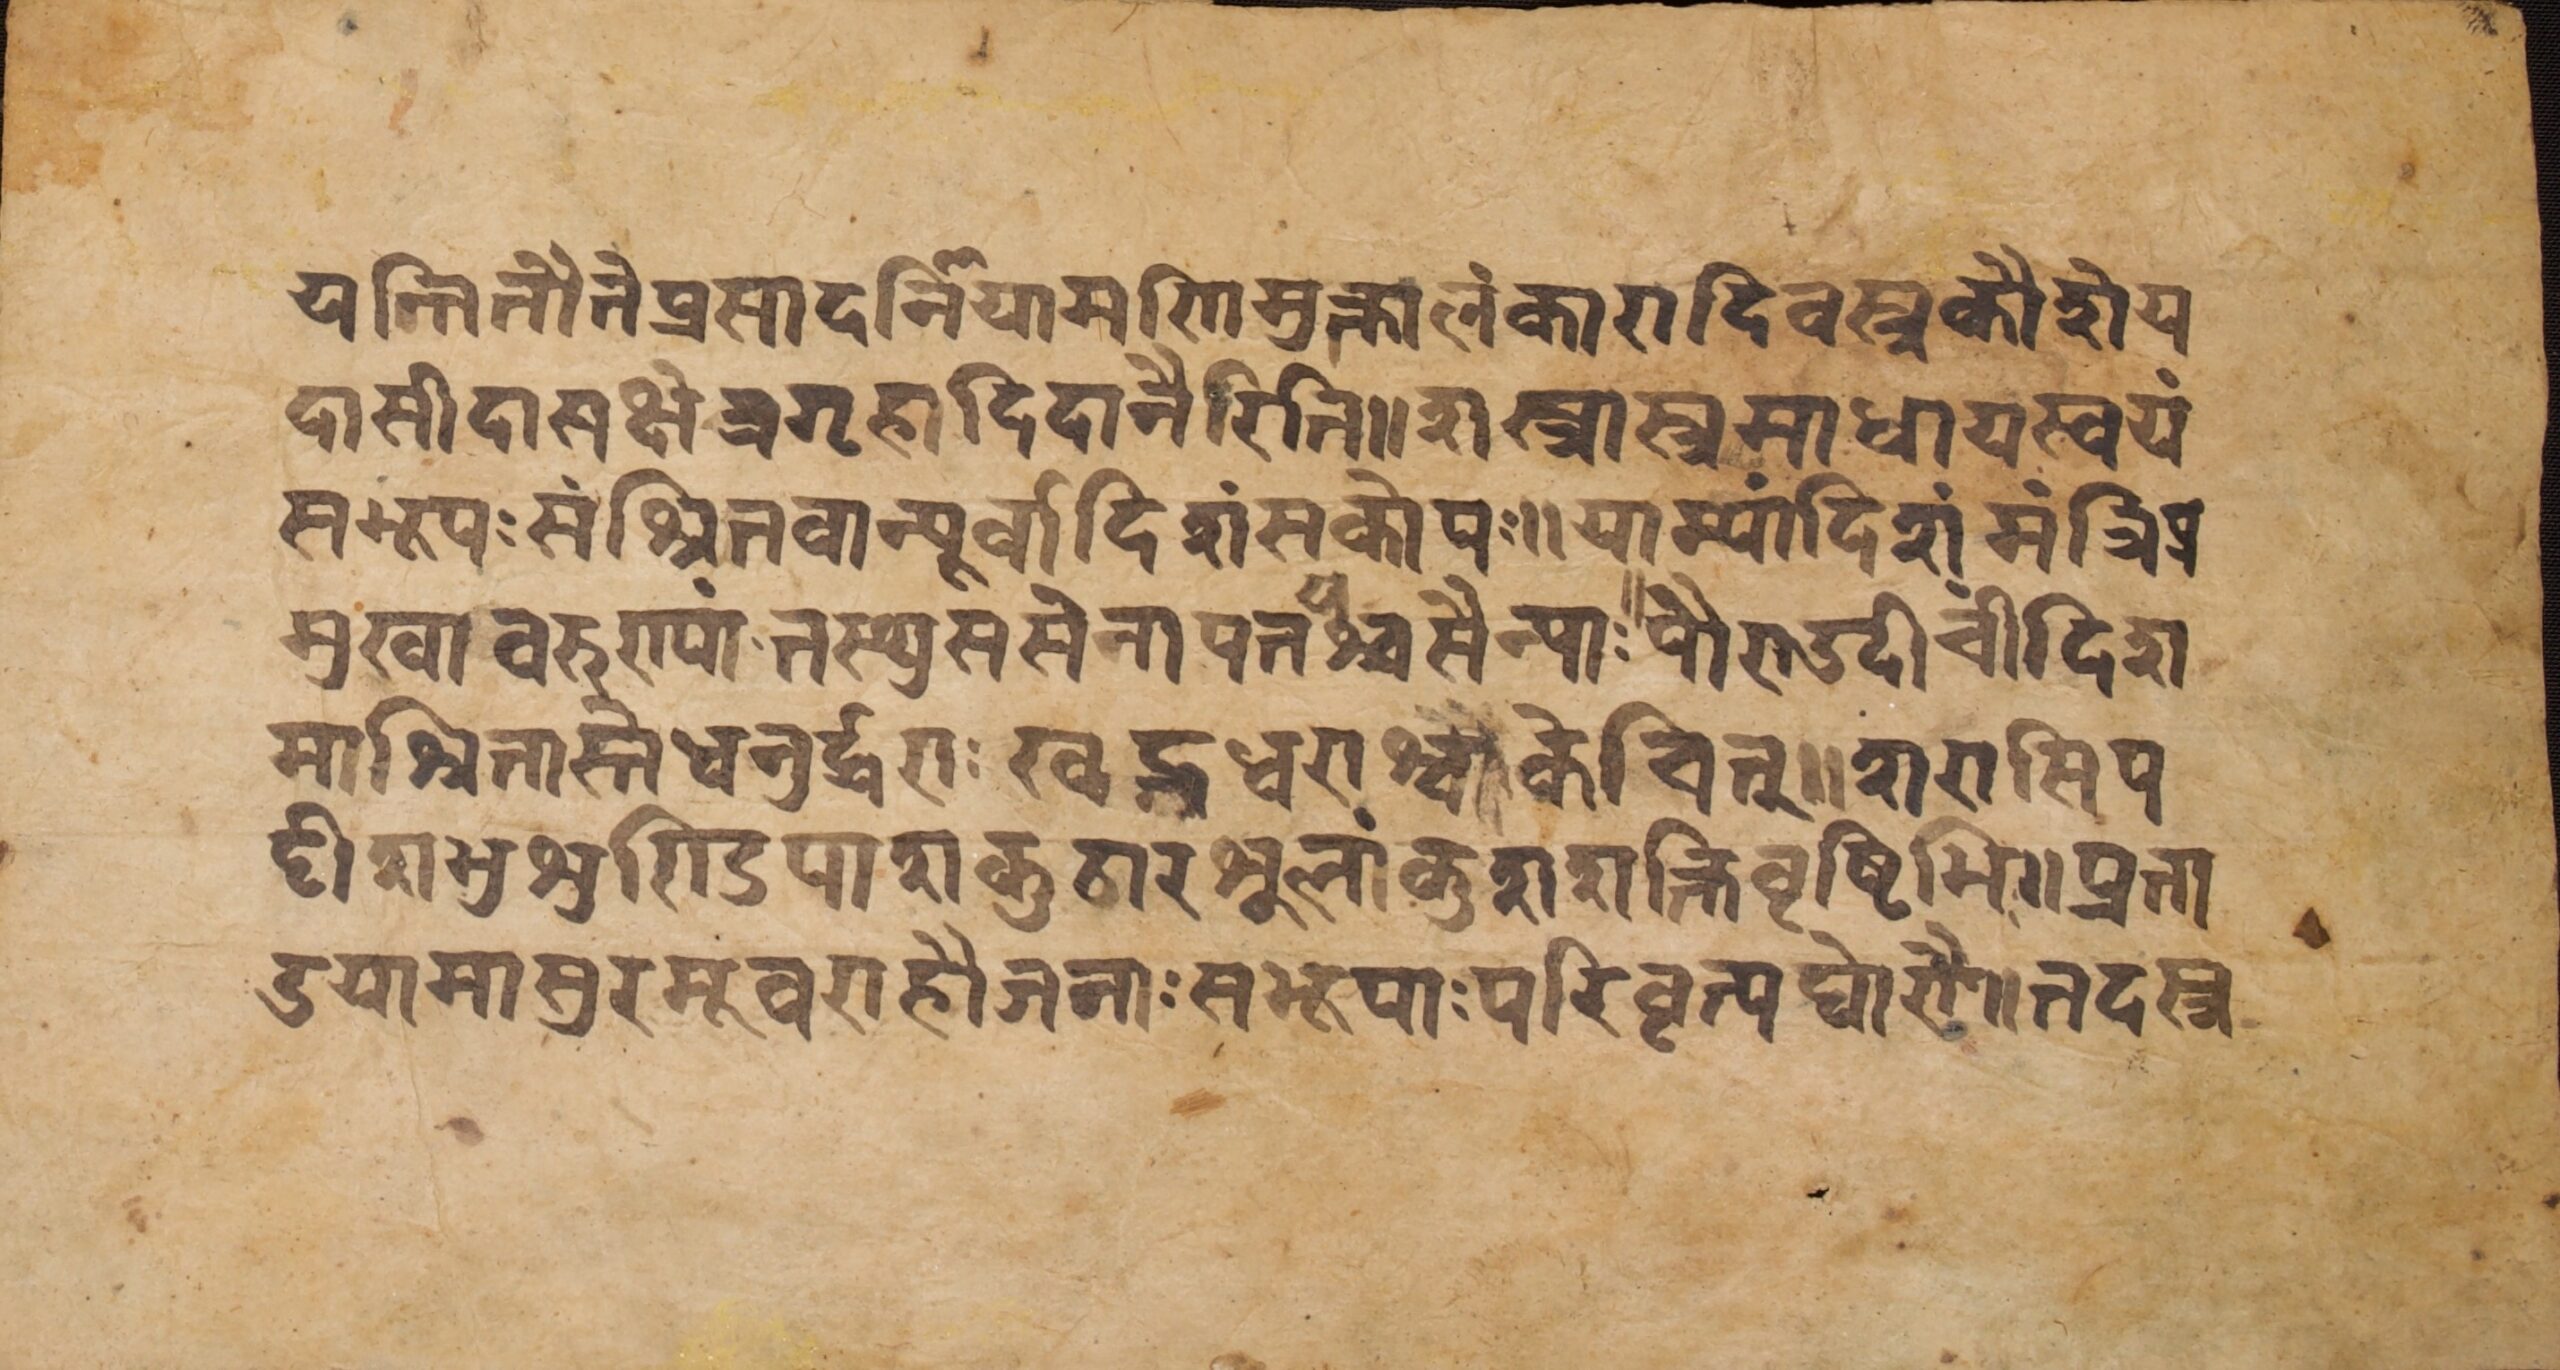 यन्तितौतेप्रसादर्नियामणिमुक्तालंकारादिवस्त्रकौशेय
दासीदासक्षेत्रगृहादिदानैरिति॥शस्त्रास्त्रमाधायस्वयं
सभूपःसंश्रितवान्पूर्वादिशंसकोपः॥याम्यांदिशंमंत्रिप्र
मुखावरुराप्यांतस्थुससेनापतयश्चसैन्याः॥पौराउदीचींदिश
माश्रितास्तेधनुर्द्धराःखड्गधराश्चकेचित्॥शरासिप
ट्टीशभुशुण्डिपाशकुठारशूलांकुशशक्तिवृष्टिभि॥प्रता
डयामासुरमूवराहौजनाःसभूपाःपरिवृत्यघोरौ॥तदस्त्र